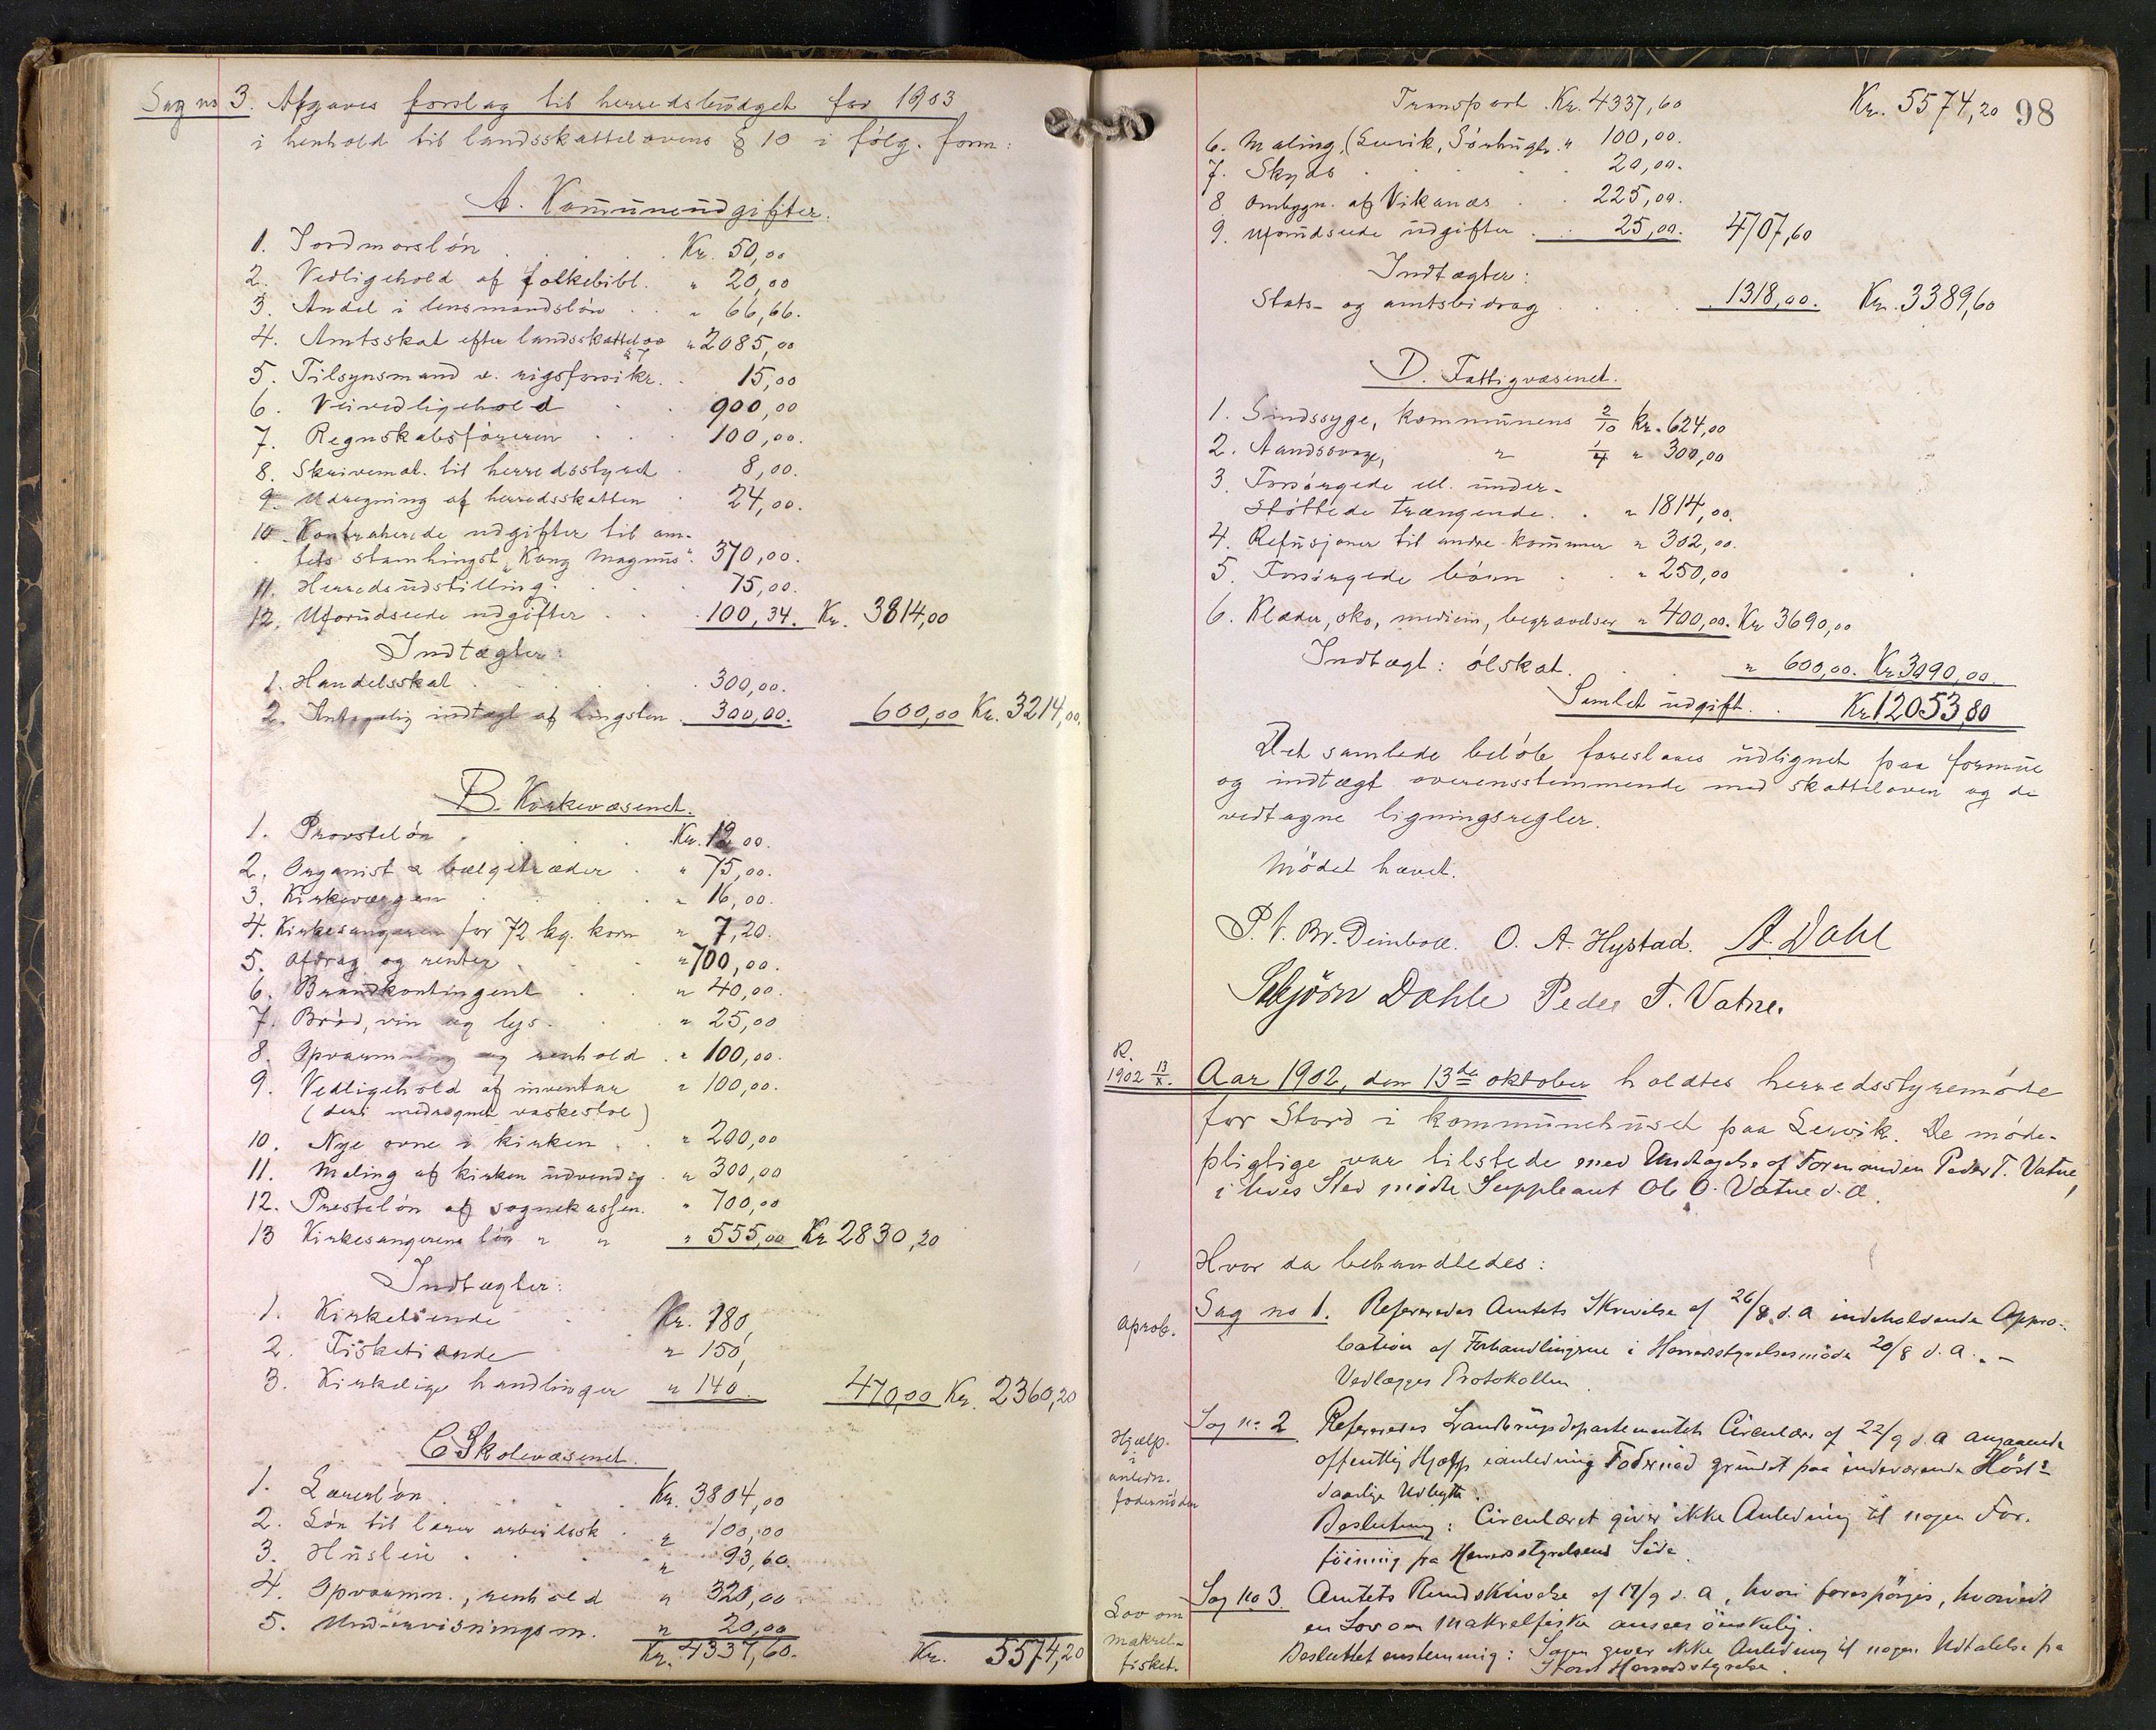 Sag no 3. Afgaves forslag til herredsbudget for 1903
i henhold til landsskattelovens § 10 i følg. form:
A. Kommuneudgifter.
1. Jordmorsløn . . . . Kr. 50,00
2. Vedligehold af folkebibl. " 20,00
3. Andel i lensmandsløn . . " 66,66.
4. Amtsskat efter landsskattelov § 7 " 2085,00
5. Tilsynsmand v. rigsforsikr. . 15,00
6. Veivedligehold . . 900,00
7. Regnskabsføreren . . . 100,00.
8. Skrivemat. til herredsstyret . 8,00.
9. Udregning af herredsskatten . 24,00.
10. Kontraherede udgifter til am-
tets stamhingst "Kong Magnus". 370,00.
11. Herredsudstilling. . . . 75,00.
12. Uforudseede udgifter . . . 100,34. Kr. 3814,00
Indtægter:
1. Handelsskat . . . . 300,00.
2. Antagelig indtægt af hingsten . 300,00. 600,00 Kr. 3214,00.
B. Kirkevæsenet.
1. Provsteløn . . . . Kr. 12,00.
2. Organist & bælgetræder . " 75,00.
3. Kirkeværgen . . . " 16,00.
4. Kirkesangeren for 72 kg. korn " 7,20.
5. Afdrag og renter . . . " 700,00.
6. Brandkontingent . . " 40,00.
7. Brød, vin og lys. . . " 25,00
8. Opvarmning og renhold . " 100,00.
9. Vedligehold af inventar " 100,00.
(deri medregnet vaskestol)
10. Nye ovne i kirken . " 200,00
11. Maling af kirken udvendig . " 300,00
12. Presteløn af sognekassen. " 700,00
13 Kirkesangerens løn " " " 555,00 Kr 2830,20
Indtægter:
1. Kirketiende . Kr. 180,
2. Fisketiende " 150,
3. Kirkelige handlinger " 140. 470,00 Kr. 2360,20
C Skolevæsenet.
1. Lærerløn . . . . Kr. 3804,00
2. Løn til lærer arbeidssk. . " 100,00
3. Husleie . . . . " 93,60.
4. Opvarmn., renhold " 320,00
5. Undervisningsm. " 20,00
Kr. 4337,60. Kr. 5574,20
Transport Kr. 4337,60 Kr. 5574,20 98
6. Maling, (Lervik, Sørhugl. " 100,00.
7. Skyds . . . . . 20,00.
8 Ombygn. af Vikanæs . . 225,00.
9. Uforudseede udgifter . . 25,00. 4707,60
Indtægter:
Stats- og amtsbidrag . . . . 1318,00. Kr. 3389,60
D. Fattigvæsenet.
1. Sindssyge, kommunens 2/10 Kr. 624,00
2. Aandssvage, " 1/4 " 300,00
3. Forsørgede ell. under-
støttede trængende. . " 1814,00.
4. Refusjoner til andre kommuner " 302,00.
5. Forsørgede børn . . " 250,00
6. Klæder, sko, medicin, begravelser " 400,00. Kr 3690,00
Indtægt: ølskat . . . " 600,00. Kr 3090,00.
Samlet udgift. . Kr 12053,80
Det samlede beløb foreslaaes udlignet paa formue
og indtægt overensstemmende med skatteloven og de
vedtagne ligningsregler.
Mødet hævet.
O. A. Hystad. A. Dahl
Dahle Peder T. Vatne.
R.
1902 13/X. Aar 1902, den 13de oktober holdtes herredsstyremøde
for Stord i kommunehuset paa Lervik. De møde-
pligtige var tilstede med Undtagelse af Formanden Peder T. Vatne,
i hvis Sted mødte Suppleant Ole O. Vatne d. æ.
Hvor da behandledes:
aprob.
Sag no 1. Refereredes Amtets Skrivelse af 26/8 d. a indeholdende Appro-
bation af Forhandlingerne i Herredsstyrelsesmøde 20/8 d. a. -
Vedlægges Protokollen.
Hjælp.
i
anledn.
fodernøden
Sag no. 2 Refereredes Landbrugsdepartementets Circulære af 22/9 d. a angaaende
offentlig Hjælp i anledning Fodernød grundet paa indeværende Høst's
daarlige Udbytte.
Beslutning: Circulæret giver ikke Anledning til nogen For-
føining fra Herredsstyrelsens Side.
Lov om
makrel-
fisket.
Sag No 3. Amtets Rundskrivelse af 17/9 d. a, hvori forespørges, hvorvidt
en Lov om Makrelfiske ansees ønskelig.
Besluttet enstemmig: Sagen giver ikke Anledning til nogen Udtalelse fra
Stord Herredsstyrelse.